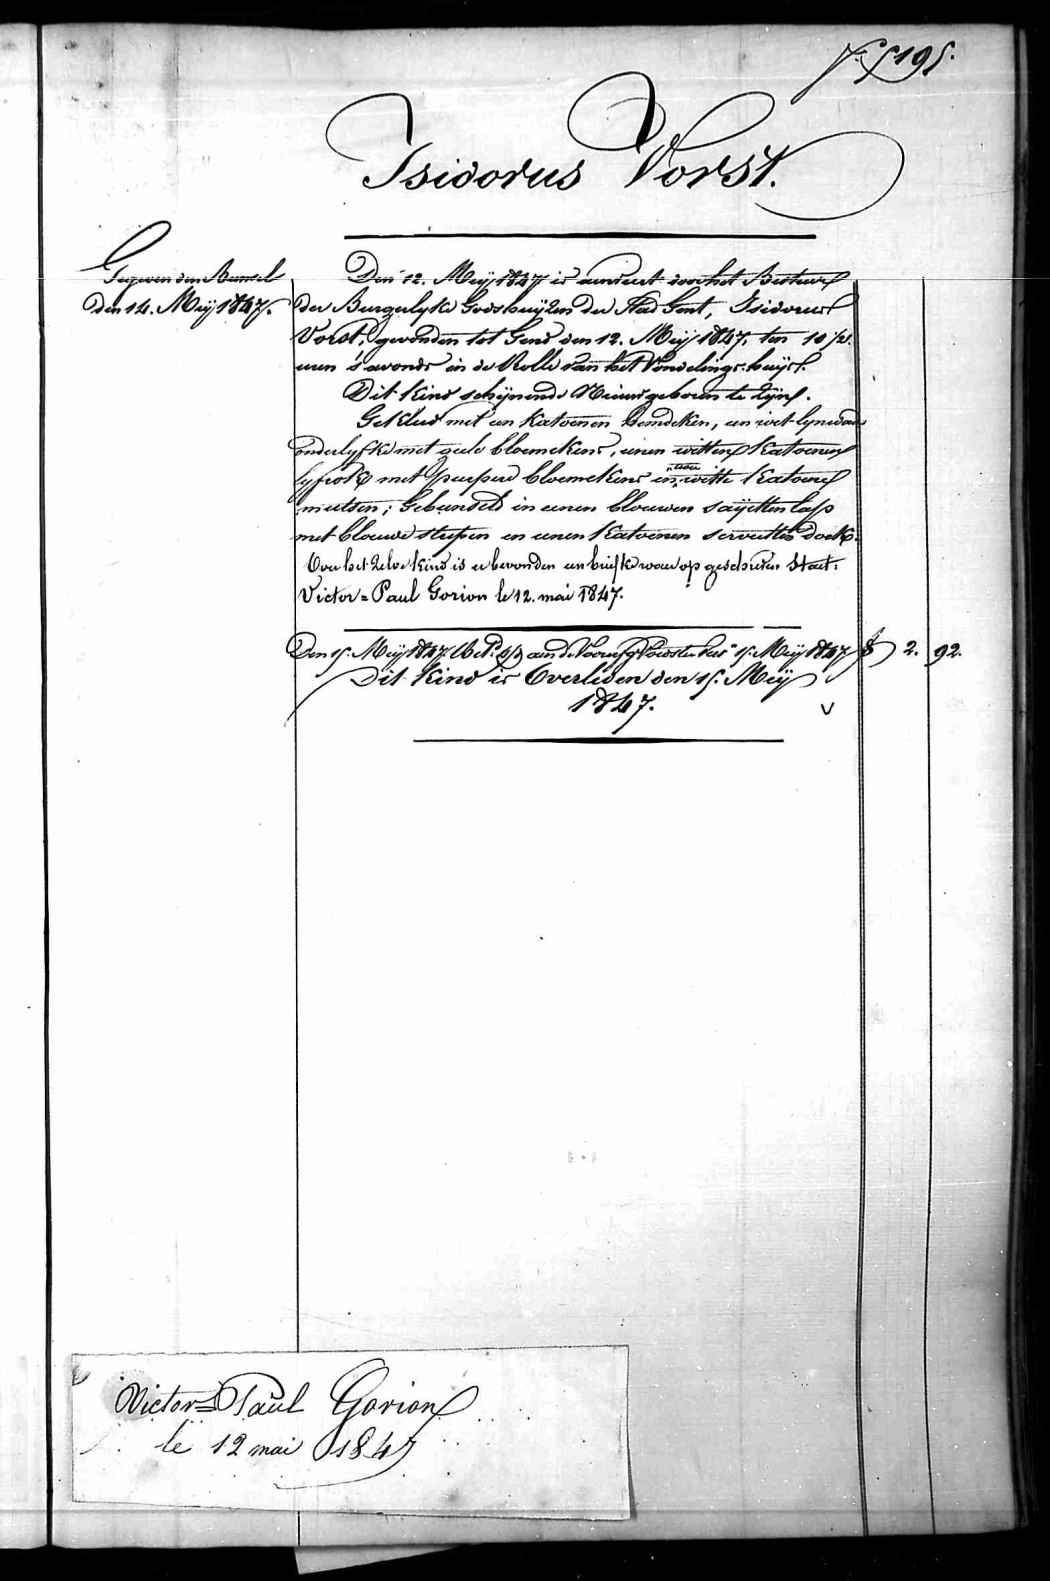 195.
Isidorus Vorst.
Gegeven den
den 14. Meij 1847.
Den 12. Meij 1847 is aenveert door het Bestuer
der Burgerlyke Godshuijzen der Stad Gent, Isidorus
Vorst, gevonden tot Gend den 12. Meij 1847, ten 10 1/2
uren 's avonds in de Rolle van het Vondelings-huijs.
Dit kind schijnende Nieuwgeboren te zijn.
Gekleed met een katoenen hemdeken, een wit lynwaed
onderlyfke met gele bloemekens, eenen witten katoenen
lyfrok met purpere bloemekens en twee witte katoene
mutsen; Gebundeld in eenen blauwen saijetten lap
met blauwe strepen en eenen katoenen servetten doek.
Over het zelve kind is er bevonden een briefke waer op geschreven staet:
Victor = Paul Gorion le 12. mai 1847.
Den 15. Meij 1847. Bet. aen de Voorsz. Voedster tot 15. Meij 1847 f 2. 92.
Dit kind is Overleden den 15. Meij
1847.
Victor = Paul Gorion
le 12 mai 1847